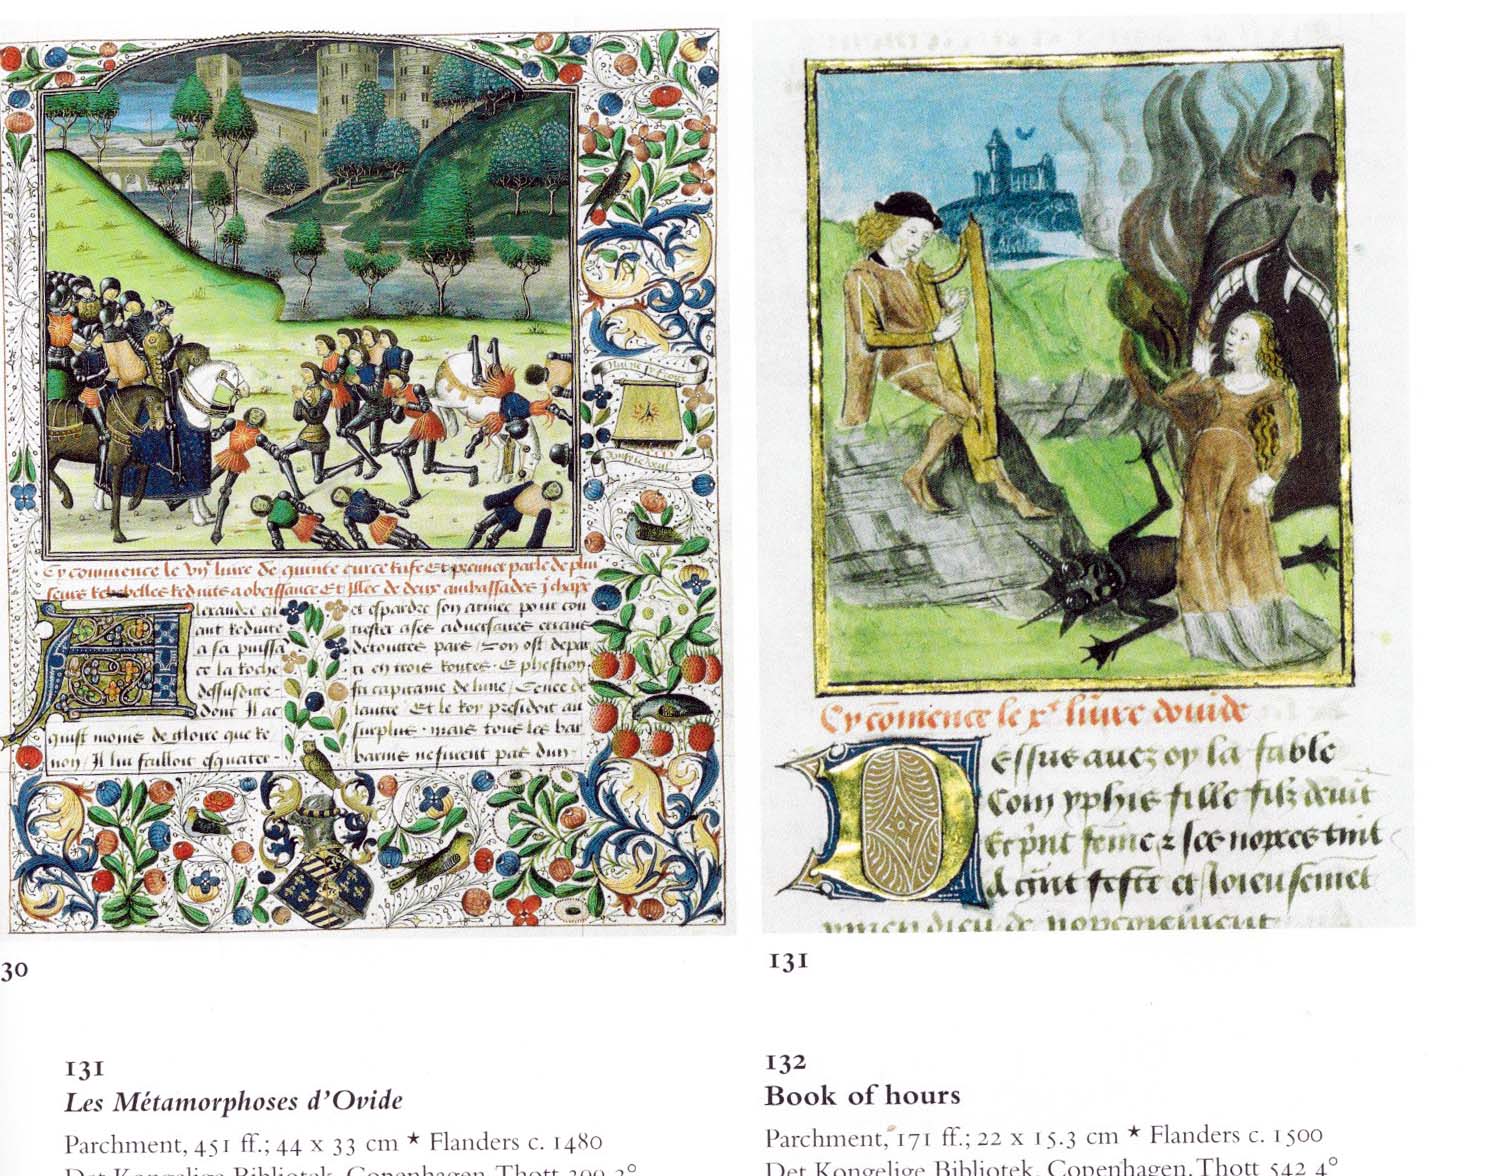 Cy commence le vij livre de quinte curce rufe Et premier parle de plu
seurs Rebelles Reduits a obeissance Et illec de deux ambassades j chapr
lexandre ai
ant Reduite
a sa puissa
ce la Roche
dessusdite
dont Il ac
quist moins de gloire que Re
non / Il lui failloit esquater
et espardre son armee pour con
trester a ses adversaires errans
de toutes pars / Son ost depar
ti en trois Routes. Ephestion
fu capitaine de lune / Cenee de
lautre Et le Roy president au
surplus. mais tous les bar
barins ne furent pas dun
Cy comence le xe livre douide
D
Essus avez oy la fable
Com yphis fille filz devit
Et prit feme z ses nopces tint
A gnt feste et Joieusemet
30
131
131
Les Métamorphoses d’Ovide
Parchment, 451 ff.; 44 x 33 cm ★ Flanders c. 1480
Det Kongelige Bibliotek, Copenhagen, Thott 399 2°
132
Book of hours
Parchment, 171 ff.; 22 x 15.3 cm ★ Flanders c. 1500
Det Kongelige Bibliotek, Copenhagen, Thott 542 4°